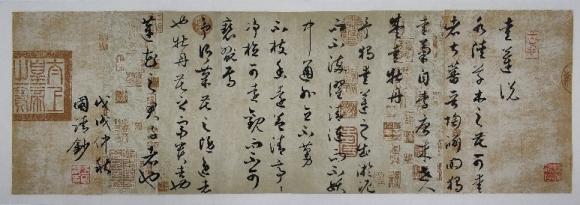 愛蓮説
水陸草木之花可愛
者甚蕃晉陶淵明獨
愛菊自李唐來世人
甚愛牡丹
予獨愛蓮之出淤泥
而不染濯清漣而不妖
中通外直不蔓
不枝香遠益清亭亭
净植可遠觀而不可
褻翫焉
予謂菊花之隱逸者
也牡丹花之富貴者也
蓮花之君子者也
戊戌中秋